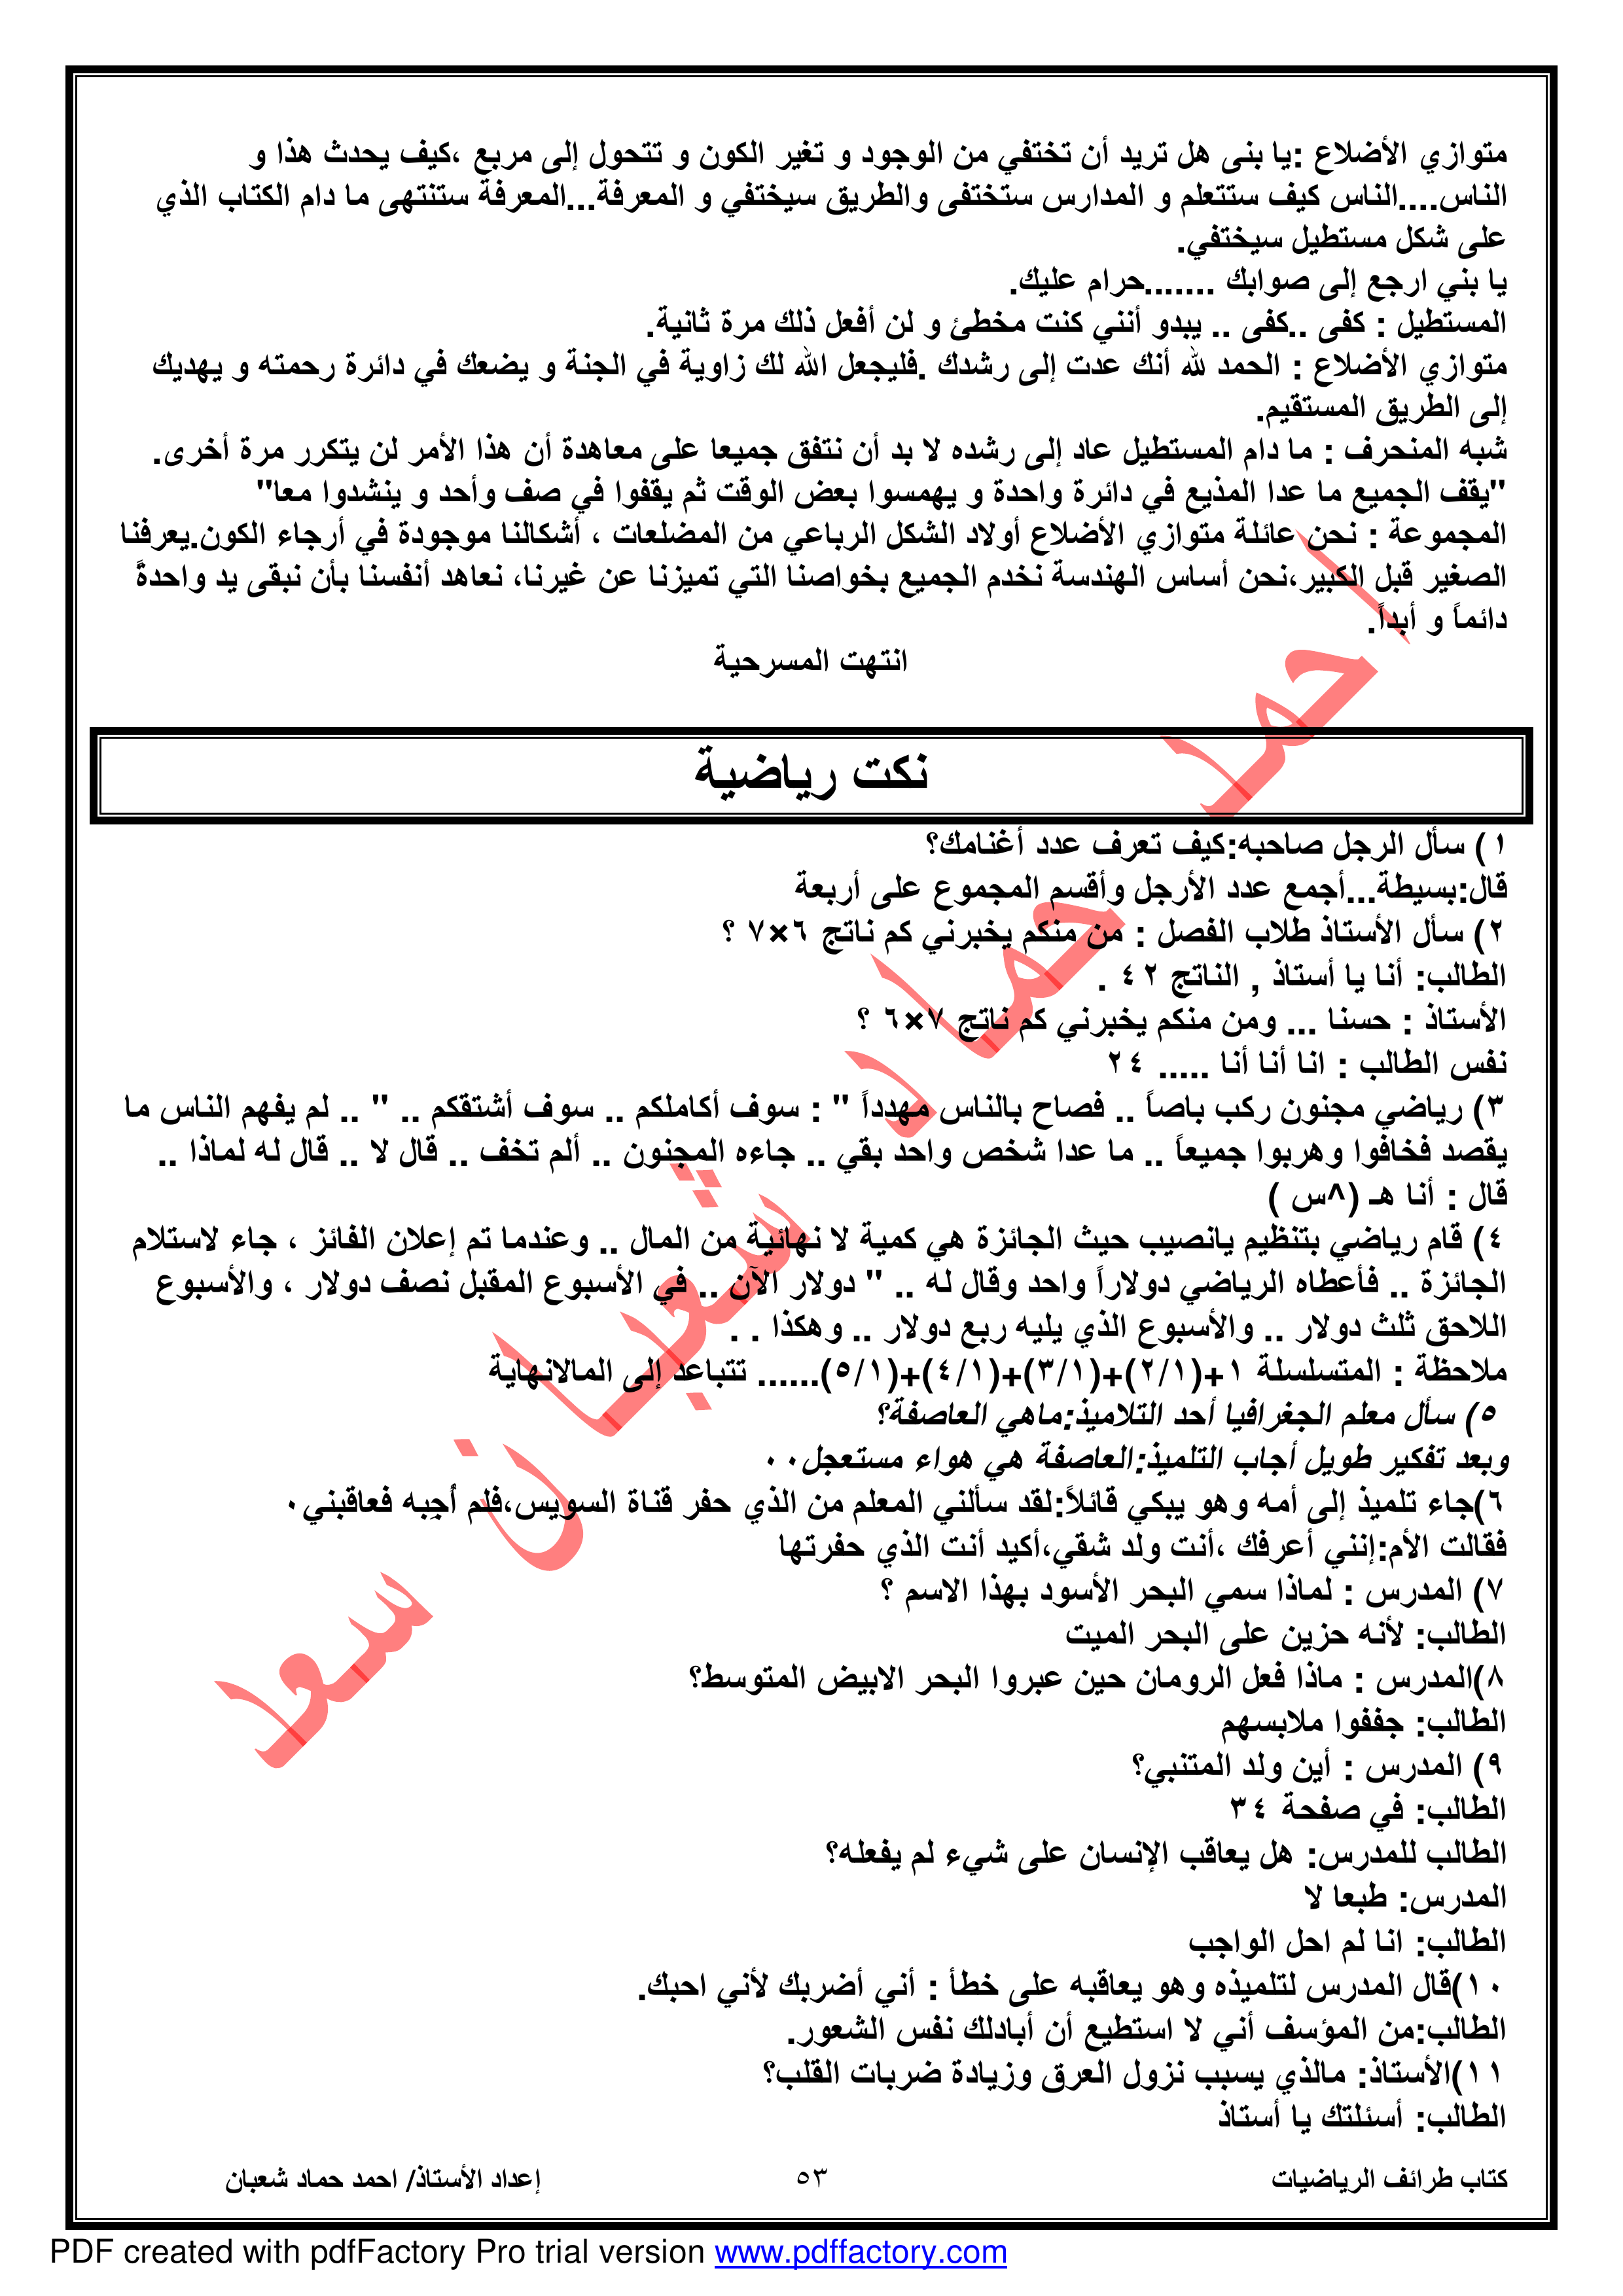 متوازي الأضلاع :يا بنى هل تريد أن تختفي من الوجود و تغير الكون و تتحول إلى مربع ،كيف يحدث هذا و
الناس....الناس كيف ستتعلم و المدارس ستختفى والطريق سيختفي و المعرفة...المعرفة ستنتهى ما دام الكتاب الذي
على شكل مستطيل سيختفي.
يا بني ارجع إلى صوابك .......حرام عليك.
المستطيل : كفى ..كفى .. يبدو أنني كنت مخطئ و لن أفعل ذلك مرة ثانية.
متوازي الأضلاع : الحمد لله أنك عدت إلى رشدك .فليجعل الله لك زاوية في الجنة و يضعك في دائرة رحمته و يهديك
إلى الطريق المستقيم.
شبه المنحرف : ما دام المستطيل عاد إلى رشده لا بد أن نتفق جميعا على معاهدة أن هذا الأمر لن يتكرر مرة أخرى.
"يقف الجميع ما عدا المذيع في دائرة واحدة و يهمسوا بعض الوقت ثم يقفوا في صف وأحد و ينشدوا معا"
المجموعة : نحن عائلة متوازي الأضلاع أولاد الشكل الرباعي من المضلعات ، أشكالنا موجودة في أرجاء الكون.يعرفنا
الصغير قبل الكبير،نحن أساس الهندسة نخدم الجميع بخواصنا التي تميزنا عن غيرنا، نعاهد أنفسنا بأن نبقى يد واحدةً
دائماً و أبداً.
انتهت المسرحية
نكت رياضية
١) سأل الرجل صاحبه:كيف تعرف عدد أغنامك؟
قال:بسيطة...أجمع عدد الأرجل وأقسم المجموع على أربعة
٢) سأل الأستاذ طلاب الفصل : من منكم يخبرني كم ناتج ٦×٧ ؟
الطالب: أنا يا أستاذ , الناتج ٤٢ .
الأستاذ : حسنا ... ومن منكم يخبرني كم ناتج ٧×٦ ؟
نفس الطالب : انا أنا أنا ..... ٢٤
٣) رياضي مجنون ركب باصاً .. فصاح بالناس مهدداً " : سوف أكاملكم .. سوف أشتقكم .. " .. لم يفهم الناس ما
يقصد فخافوا وهربوا جميعاً .. ما عدا شخص واحد بقي .. جاءه المجنون .. ألم تخف .. قال لا .. قال له لماذا ..
قال : أنا هـ (^س )
٤) قام رياضي بتنظيم يانصيب حيث الجائزة هي كمية لا نهائية من المال .. وعندما تم إعلان الفائز ، جاء لاستلام
الجائزة .. فأعطاه الرياضي دولاراً واحد وقال له .. " دولار الآن .. في الأسبوع المقبل نصف دولار ، والأسبوع
اللاحق ثلث دولار .. والأسبوع الذي يليه ربع دولار .. وهكذا . .
ملاحظة : المتسلسلة ١+(٢/١)+(٣/١)+(٤/١)+(٥/١)...... تتباعد إلى المالانهاية
٥) سأل معلم الجغرافيا أحد التلاميذ:ماهي العاصفة؟
وبعد تفكير طويل أجاب التلميذ:العاصفة هي هواء مستعجل٠٠
٦)جاء تلميذ إلى أمه وهو يبكي قائلاً:لقد سألني المعلم من الذي حفر قناة السويس،فلم أجبه فعاقبني٠
فقالت الأم:إنني أعرفك ،أنت ولد شقي،أكيد أنت الذي حفرتها
٧) المدرس : لماذا سمي البحر الأسود بهذا الاسم ؟
الطالب: لأنه حزين على البحر الميت
٨)المدرس : ماذا فعل الرومان حين عبروا البحر الابيض المتوسط؟
الطالب: جففوا ملابسهم
٩) المدرس : أين ولد المتنبي؟
الطالب: في صفحة ٣٤
الطالب للمدرس: هل يعاقب الإنسان على شيء لم يفعله؟
المدرس: طبعا لا
الطالب: انا لم احل الواجب
١٠)قال المدرس لتلميذه وهو يعاقبه على خطأ : أني أضربك لأني احبك.
الطالب:من المؤسف أني لا استطيع أن أبادلك نفس الشعور.
١١)الأستاذ: مالذي يسبب نزول العرق وزيادة ضربات القلب؟
الطالب: أسئلتك يا أستاذ
احمد حماد شعبان سعد
كتاب طرائف الرياضيات ٥٣ إعداد الأستاذ/ احمد حماد شعبان
PDF created with pdfFactory Pro trial version www.pdffactory.com